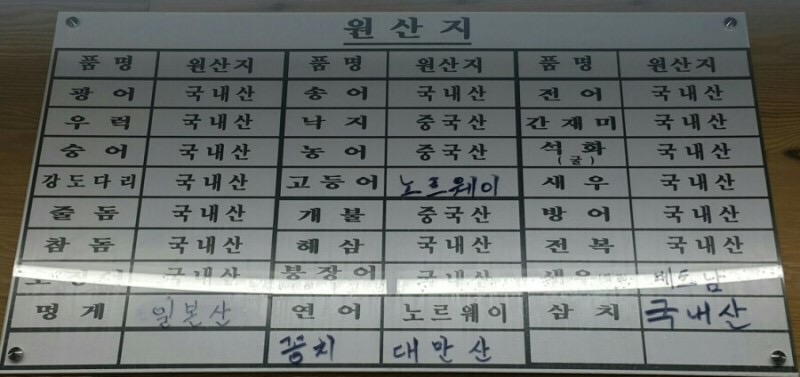 원산지
품명 원산지 품명 원산지 품명 원산지
광어 국내산 송어 국내산 전어 국내산
우럭 국내산 낙지 중국산 간재미 국내산
숭어 국내산 농어 중국산 석화(굴) 국내산
강도다리 국내산 고등어 노르웨이 새우 국내산
줄돔 국내산 개불 중국산 방어 국내산
참돔 국내산 해삼 국내산 전복 국내산
국내산 붕장어 국내산 새우 베트남
멍게 일본산 연어 노르웨이 삼치 국내산
꽁치 대만산